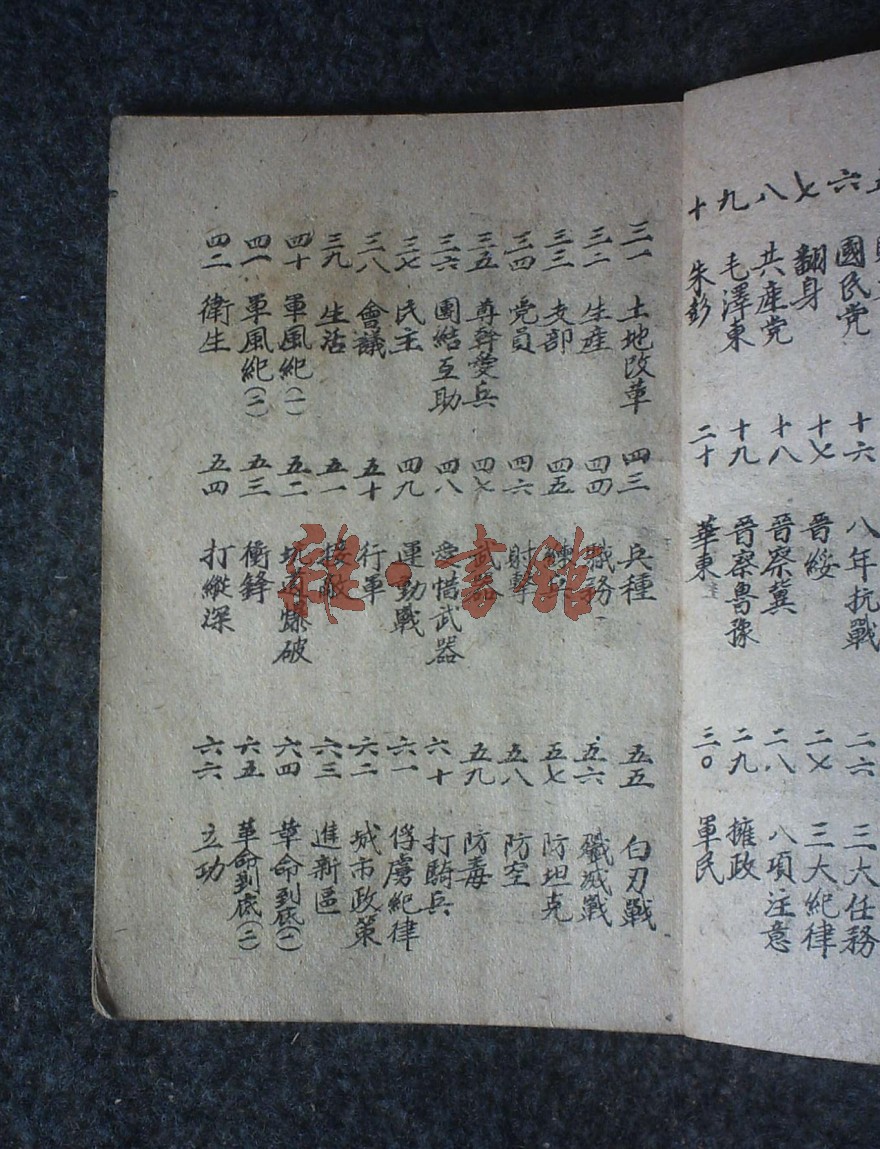 六 國民党
七 翻身
八 共産党
九 毛澤東
十 朱彭
十六 八年抗戰
十七 晉綏
十八 晉察冀
十九 晉察魯豫
二十 華東
二六 三大任務
二七 三大紀律
二八 八項注意
二九 擁政
三〇 軍民
三一 土地改革
三二 生産
三三 支部
三四 党員
三五 尊幹愛兵
三六 團結互助
三七 民主
三八 會議
三九 生活
四十 軍風紀(一)
四一 軍風紀(二)
四二 衛生
四三 兵種
四四 職務
四五 練兵
四六 射擊
四七 武器
四八 愛惜武器
四九 運動戰
五十 行軍
五一 接敵
五二 坑道爆破
五三 衝鋒
五四 打縱深
五五 白刃戰
五六 殲滅戰
五七 防坦克
五八 防空
五九 防毒
六十 打騎兵
六一 俘虜紀律
六二 城市政策
六三 進新區
六四 革命到底(一)
六五 革命到底(二)
六六 立功
雜·書館